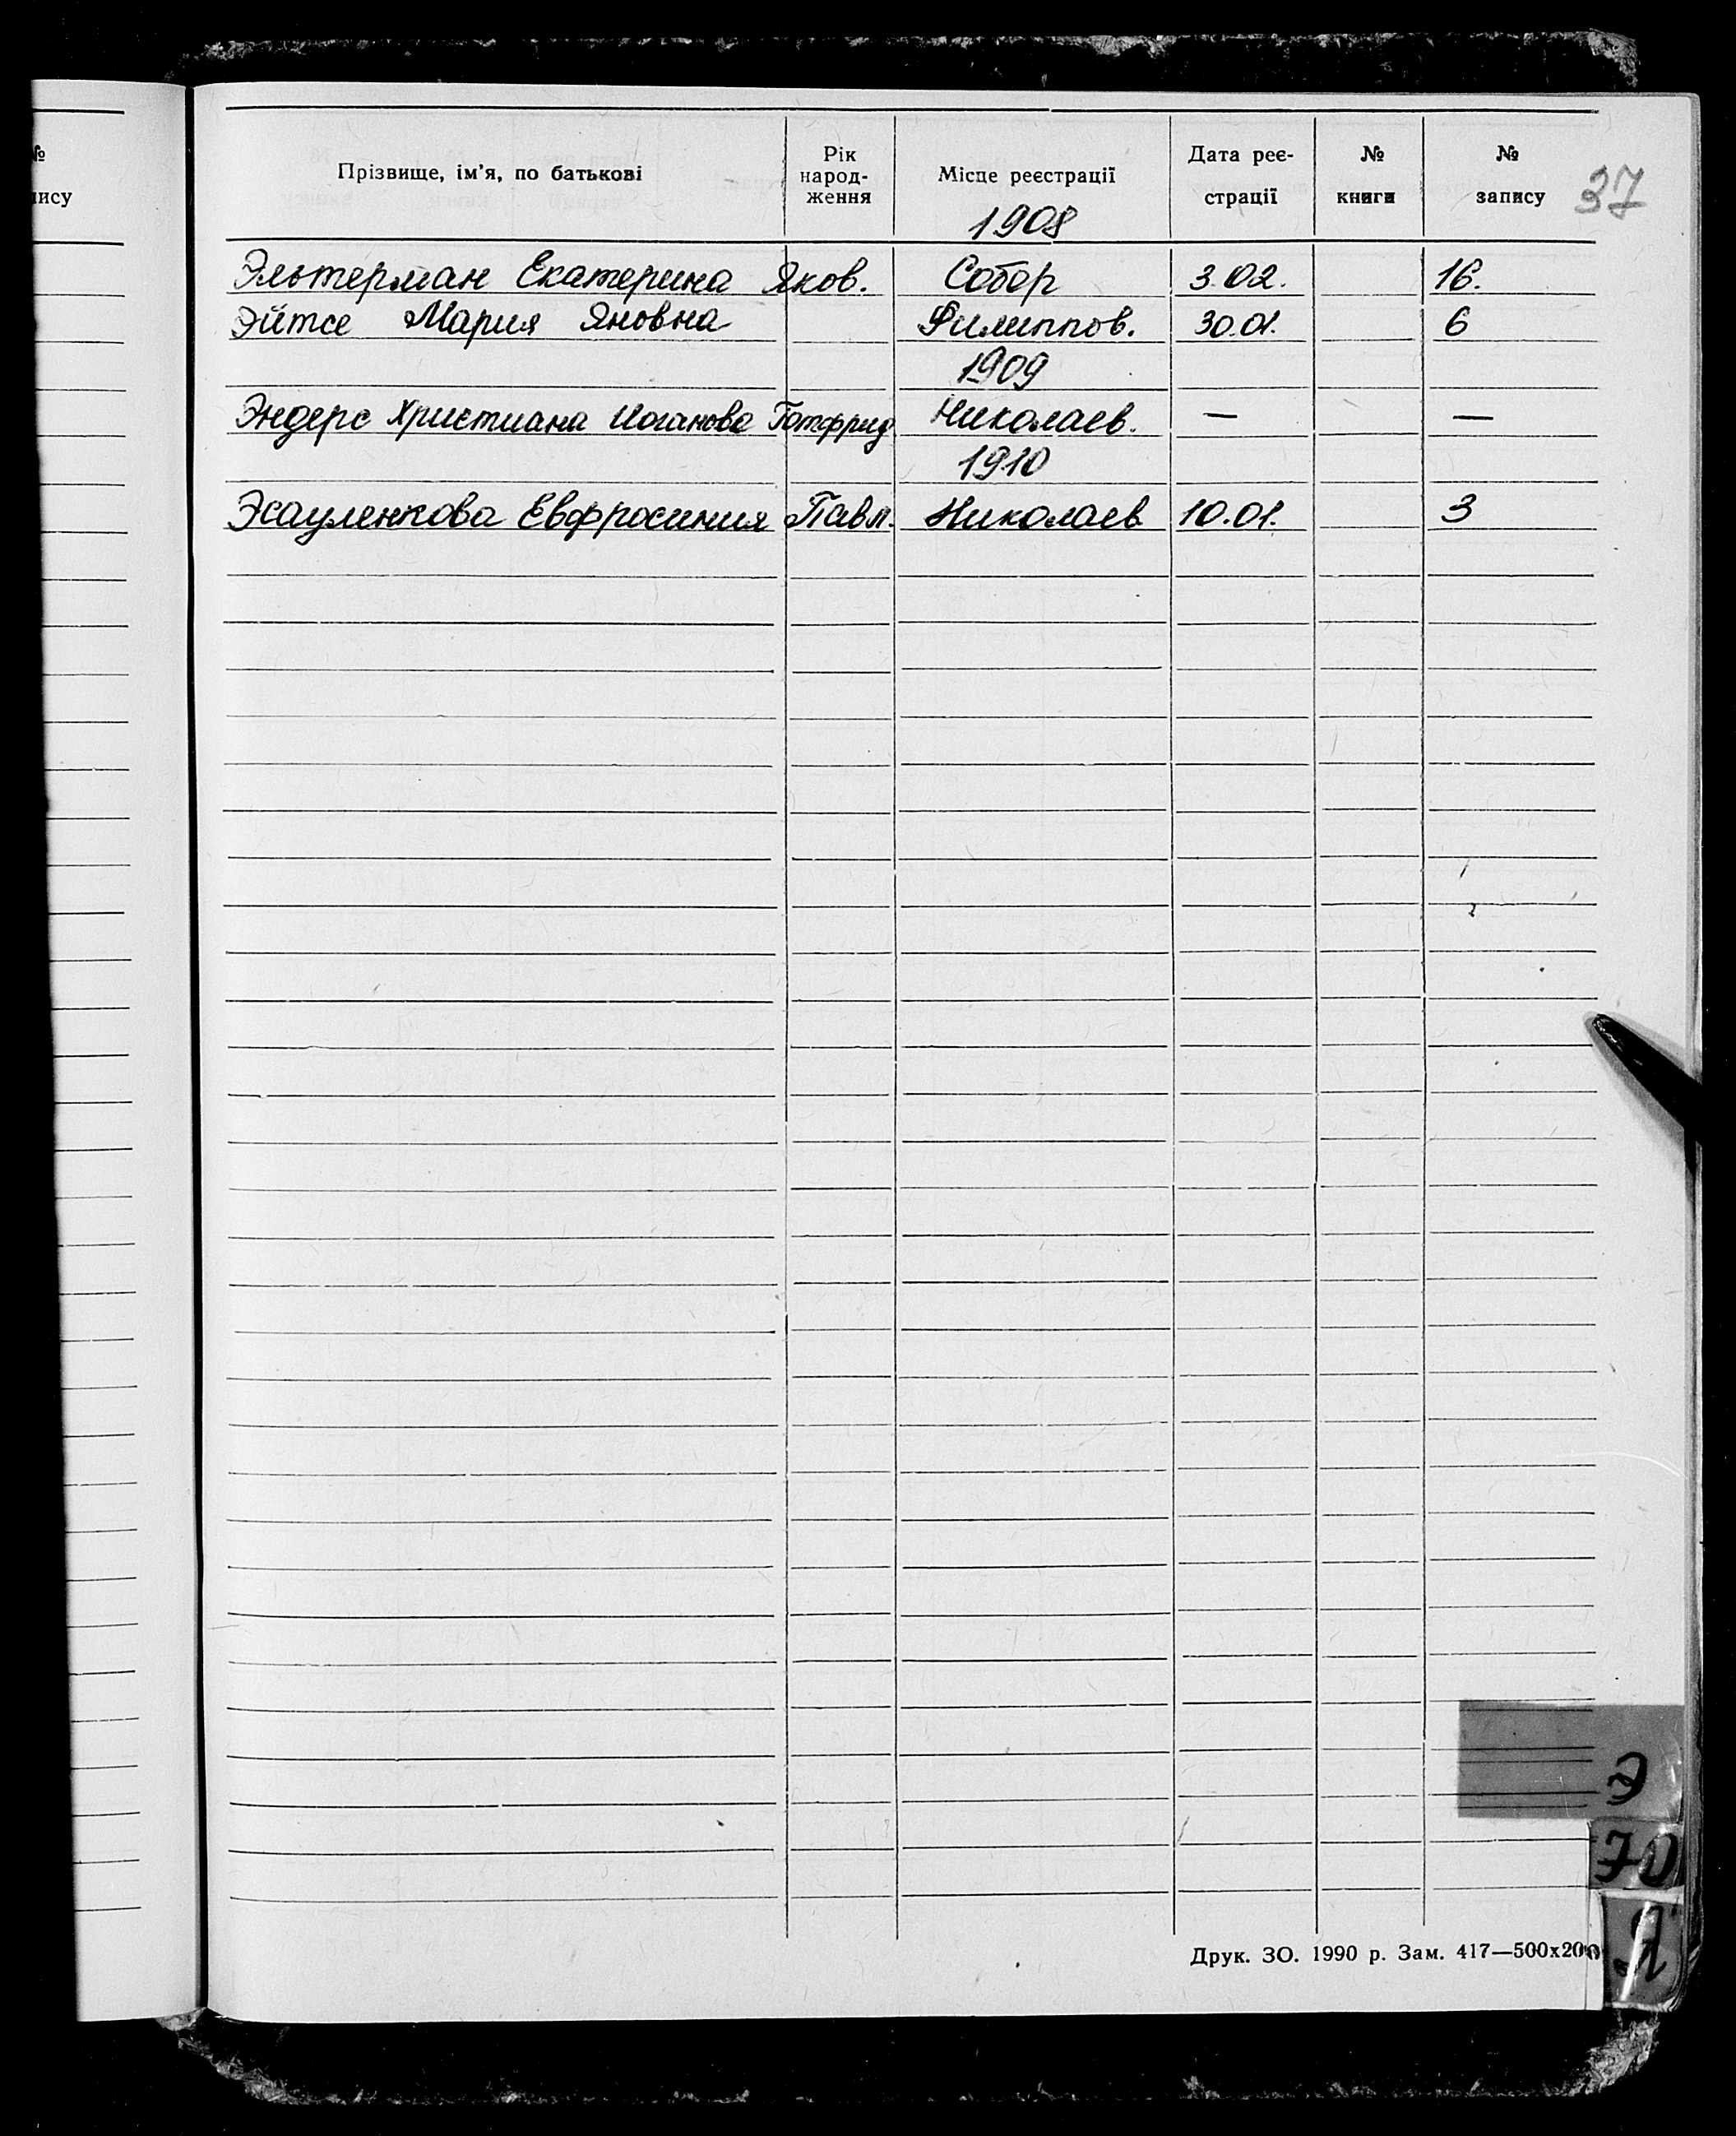 №
пису
Прізвище, ім'я, по батькові
Рік народ- ження
Місце реєстрації
Дата реє- страції
№ книги
№ запису
37
1908
Эльтерман Екатерина Яков. Собор 3.02. 16.
Эйтсе Мария Яновна Филиппов. 30.01. 6
1909
Эндерс Христиана Иоганова Готфрид Николаев. — —
1910
Эсауленкова Евфросиния Павл. Николаев 10.01. 3
Э
Ю
Я
Друк. ЗО. 1990 р. Зам. 417—500х200